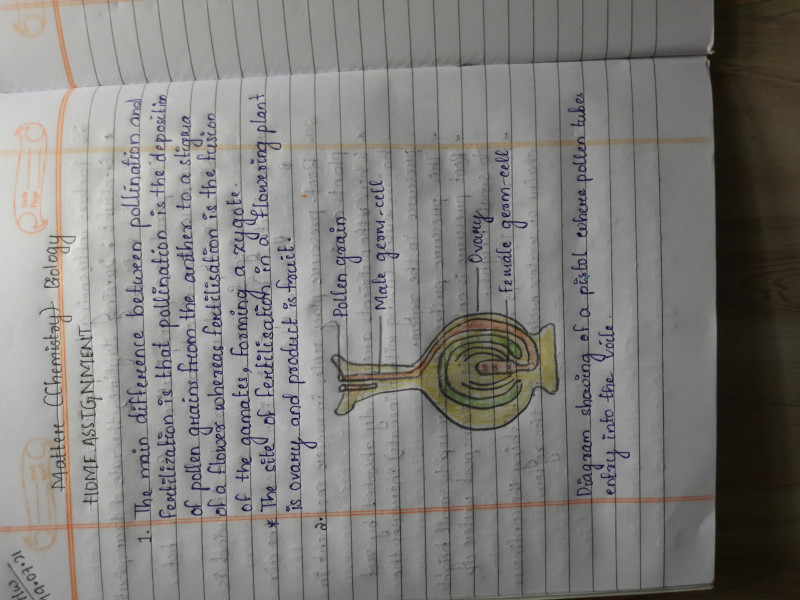 19.07.21
Matter (Chemistry) Biology
HOME ASSIGNMENT
1. The main difference between pollination and
fertilization is that pollination is the deposition
of pollen grains from the anther to a stigma
of a flower whereas fertilisation is the fusion
of the gamates, forming a zygote.
* The site of fertilisation in a flowering plant
is ovary and product is fruit.
2.
Pollen grain
Male germ-cell
Ovary
Female germ-cell
Diagram showing of a pistol where pollen tubes
entry into the